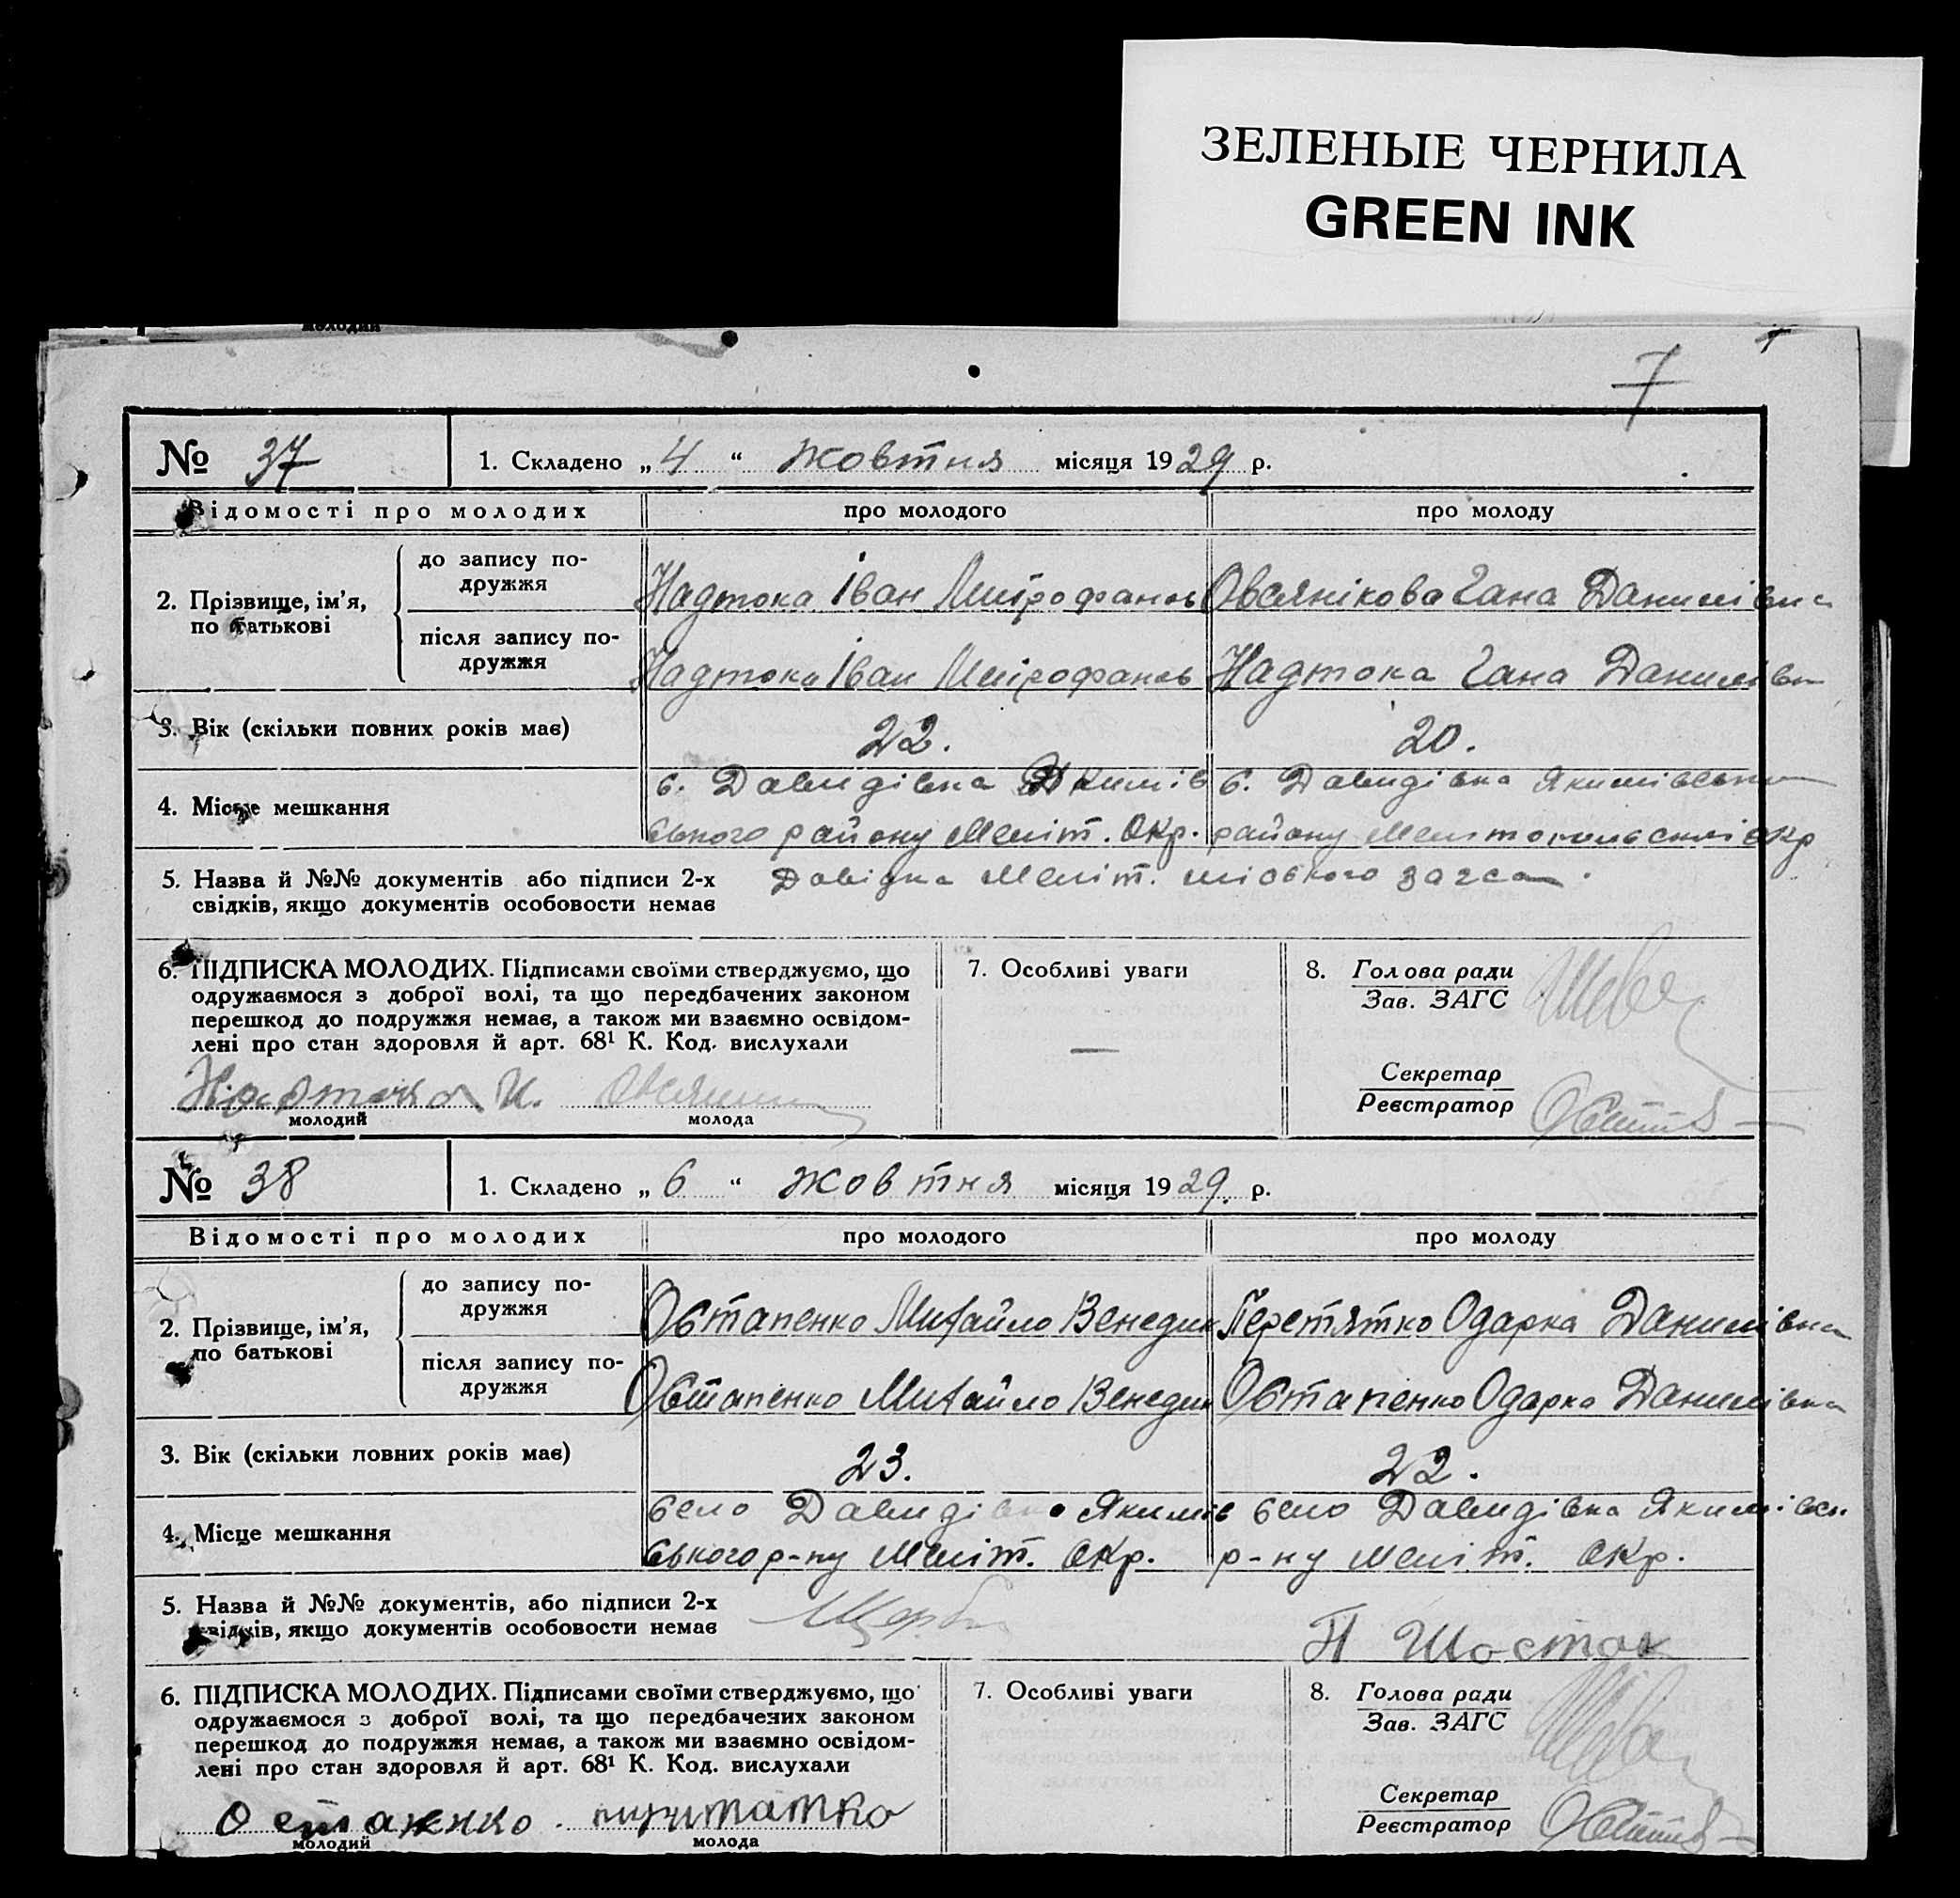 ЗЕЛЕНЫЕ ЧЕРНИЛА
GREEN INK
молодий
7
№ 37 1. Складено „4“ жовтня місяця 1929 р.
Відомості про молодих про молодого про молоду
2. Прізвище, ім'я, по батькові
до запису подружжя Надтока Іван Митрофанов Овсянікова Гана Данилівна
після запису подружжя Надтока Іван Митрофанов Надтока Гана Данилівн
3. Вік (скільки повних років має) 22. 20.
4. Місце мешкання
с. Давидівка Якимів с. Давидівка Якимівськ
ського району Меліт. Окр. району Мелітопольської окр
5. Назва й №№ документів або підписи 2-х Довідка Меліт. міського загса.
свідків, якщо документів особовости немає
6. ПІДПИСКА МОЛОДИХ. Підписами своїми стверджуємо, що
одружаємося з доброї волі, та що передбачених законом
перешкод до подружжя немає, а також ми взаємно освідом-
лені про стан здоровля й арт. 68¹ К. Код. вислухали
Надтока И.
молодий молода
7. Особливі уваги
—
8. Голова ради
Зав. ЗАГС
Секретар
Реєстратор
№ 38 1. Складено „6“ жовтня місяця 1929. р.
Відомості про молодих про молодого про молоду
2. Прізвище, ім'я, по батькові
до запису подружжя Остапенко Михайло Венедик Перетятко Одарка Данилівна
після запису подружжя Остапенко Михайло Венедик Остапенко Одарка Данилівна
3. Вік (скільки повних років має) 23. 22.
4. Місце мешкання
село Давидівка Якимів село Давидівка Якимівськ.
ського р-ну Меліт. Окр. р-ну Меліт. Окр.
5. Назва й №№ документів, або підписи 2-х Щерб
свідків, якщо документів особовости немає П Шостак
6. ПІДПИСКА МОЛОДИХ. Підписами своїми стверджуємо, що
одружаємося з доброї волі, та що передбачених законом
перешкод до подружжя немає, а також ми взаємно освідом-
лені про стан здоровля й арт. 68¹ К. Код. вислухали
Остапенко
молодий молода
7. Особливі уваги
8. Голова ради
Зав. ЗАГС
Секретар
Реєстратор